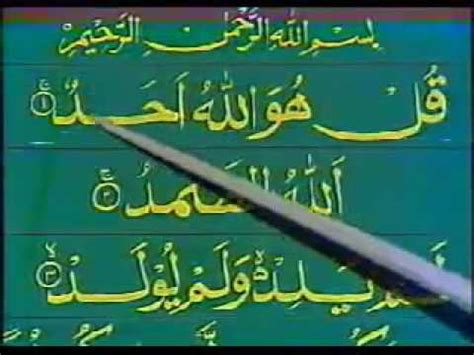 بِسْمِ اللهِ الرَّحْمٰنِ الرَّحِيْمِ
قُلْ هُوَ اللهُ اَحَدٌ ۝١
اَللهُ الصَّمَدُ ۝٢
لَمْ يَلِدْ وَلَمْ يُوْلَدْ ۝٣